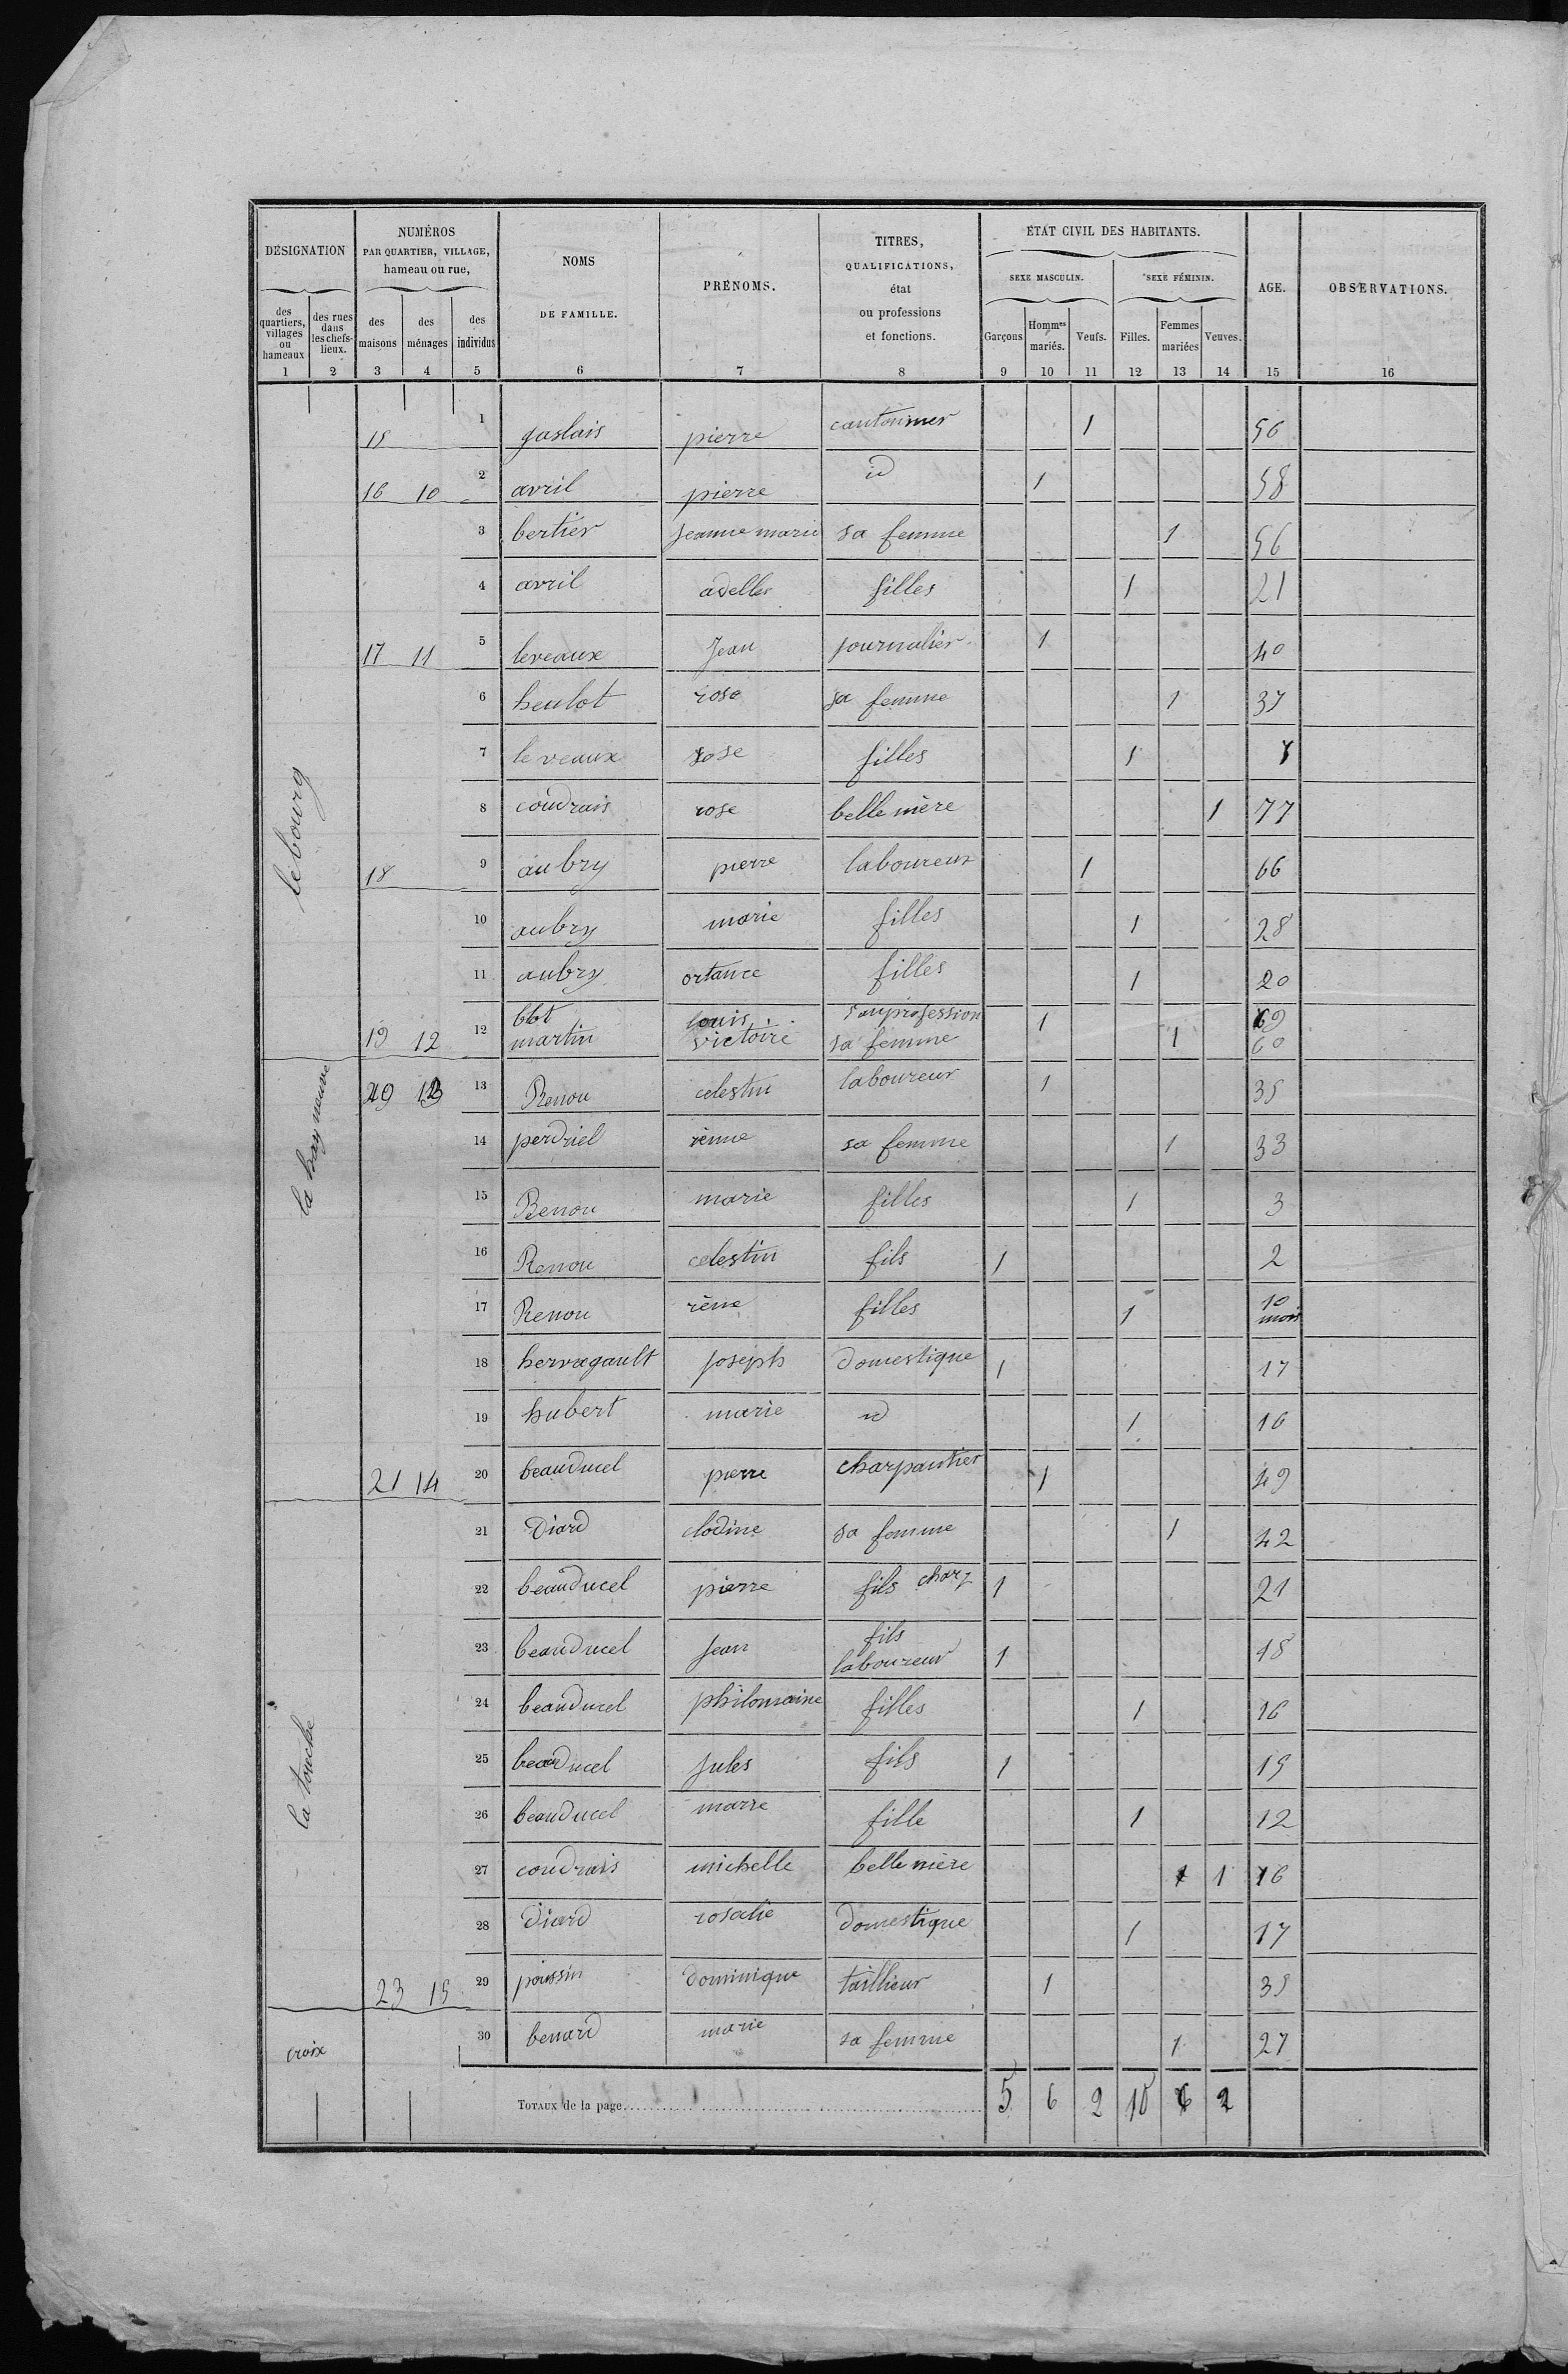 DÉSIGNATION
des quartiers, villages ou hameaux
des rues dans les chefs-lieux.
NUMÉROS
PAR QUARTIER, VILLAGE,
hameau ou rue,
des maisons
des ménages
des individus
NOMS
DE FAMILLE.
PRÉNOMS.
TITRES,
QUALIFICATIONS,
état
ou professions
et fonctions.
ÉTAT CIVIL DES HABITANTS.
SEXE MASCULIN.
SEXE FÉMININ.
Garçons
Hommes mariés.
Veufs.
Filles.
Femmes mariées
Veuves.
AGE.
OBSERVATIONS.
1 2 3 4 5 6 7 8 9 10 11 12 13 14 15 16
le bourg
15 1 gaslais pierre cantonnier 1 56
16 10 2 avril pierre id 1 58
3 bertier jeanne marie sa femme 1 56
4 avril adelle filles 1 21
17 11 5 leveaux Jean journalier 1 40
6 heulot rose sa femme 1 37
7 leveaux rose filles 1
8 coudrais rose belle mère 1 77
18 9 aubry pierre laboureur 1 66
10 aubry marie filles 1 28
11 aubry ortance filles 1 20
19 12 12 blot louis sanprofession 1 69
martin victoire sa femme 1 60
la hay neuve
20 13 13 Renou celestin laboureur 1 35
14 perdriel rènne sa femme 1 33
15 Renou marie filles 1 3
16 Renou celestin fils 1 2
17 Renou rène filles 1 10 mois
18 hervegault joseph domestique 1 17
19 hubert marie id 1 16
21 14 20 beauducel pierre charpantier 1 49
la touche
21 diard clodine sa femme 1 42
22 beauducel pierre fils char 1 21
23 beauducel jean fils laboureur 1 18
24 beauducel philomaine filles 1 16
25 beauducel jules fils 1 15
26 beauducel marie fille 1 12
27 coudrais michelle belle mère 1 1 76
28 diard rosalie domestique 1 17
23 15 29 poussin dominique taillieur 1 35
croix
30 benard marie sa femme 1 27
TOTAUX de la page 5 6 2 10 6 2